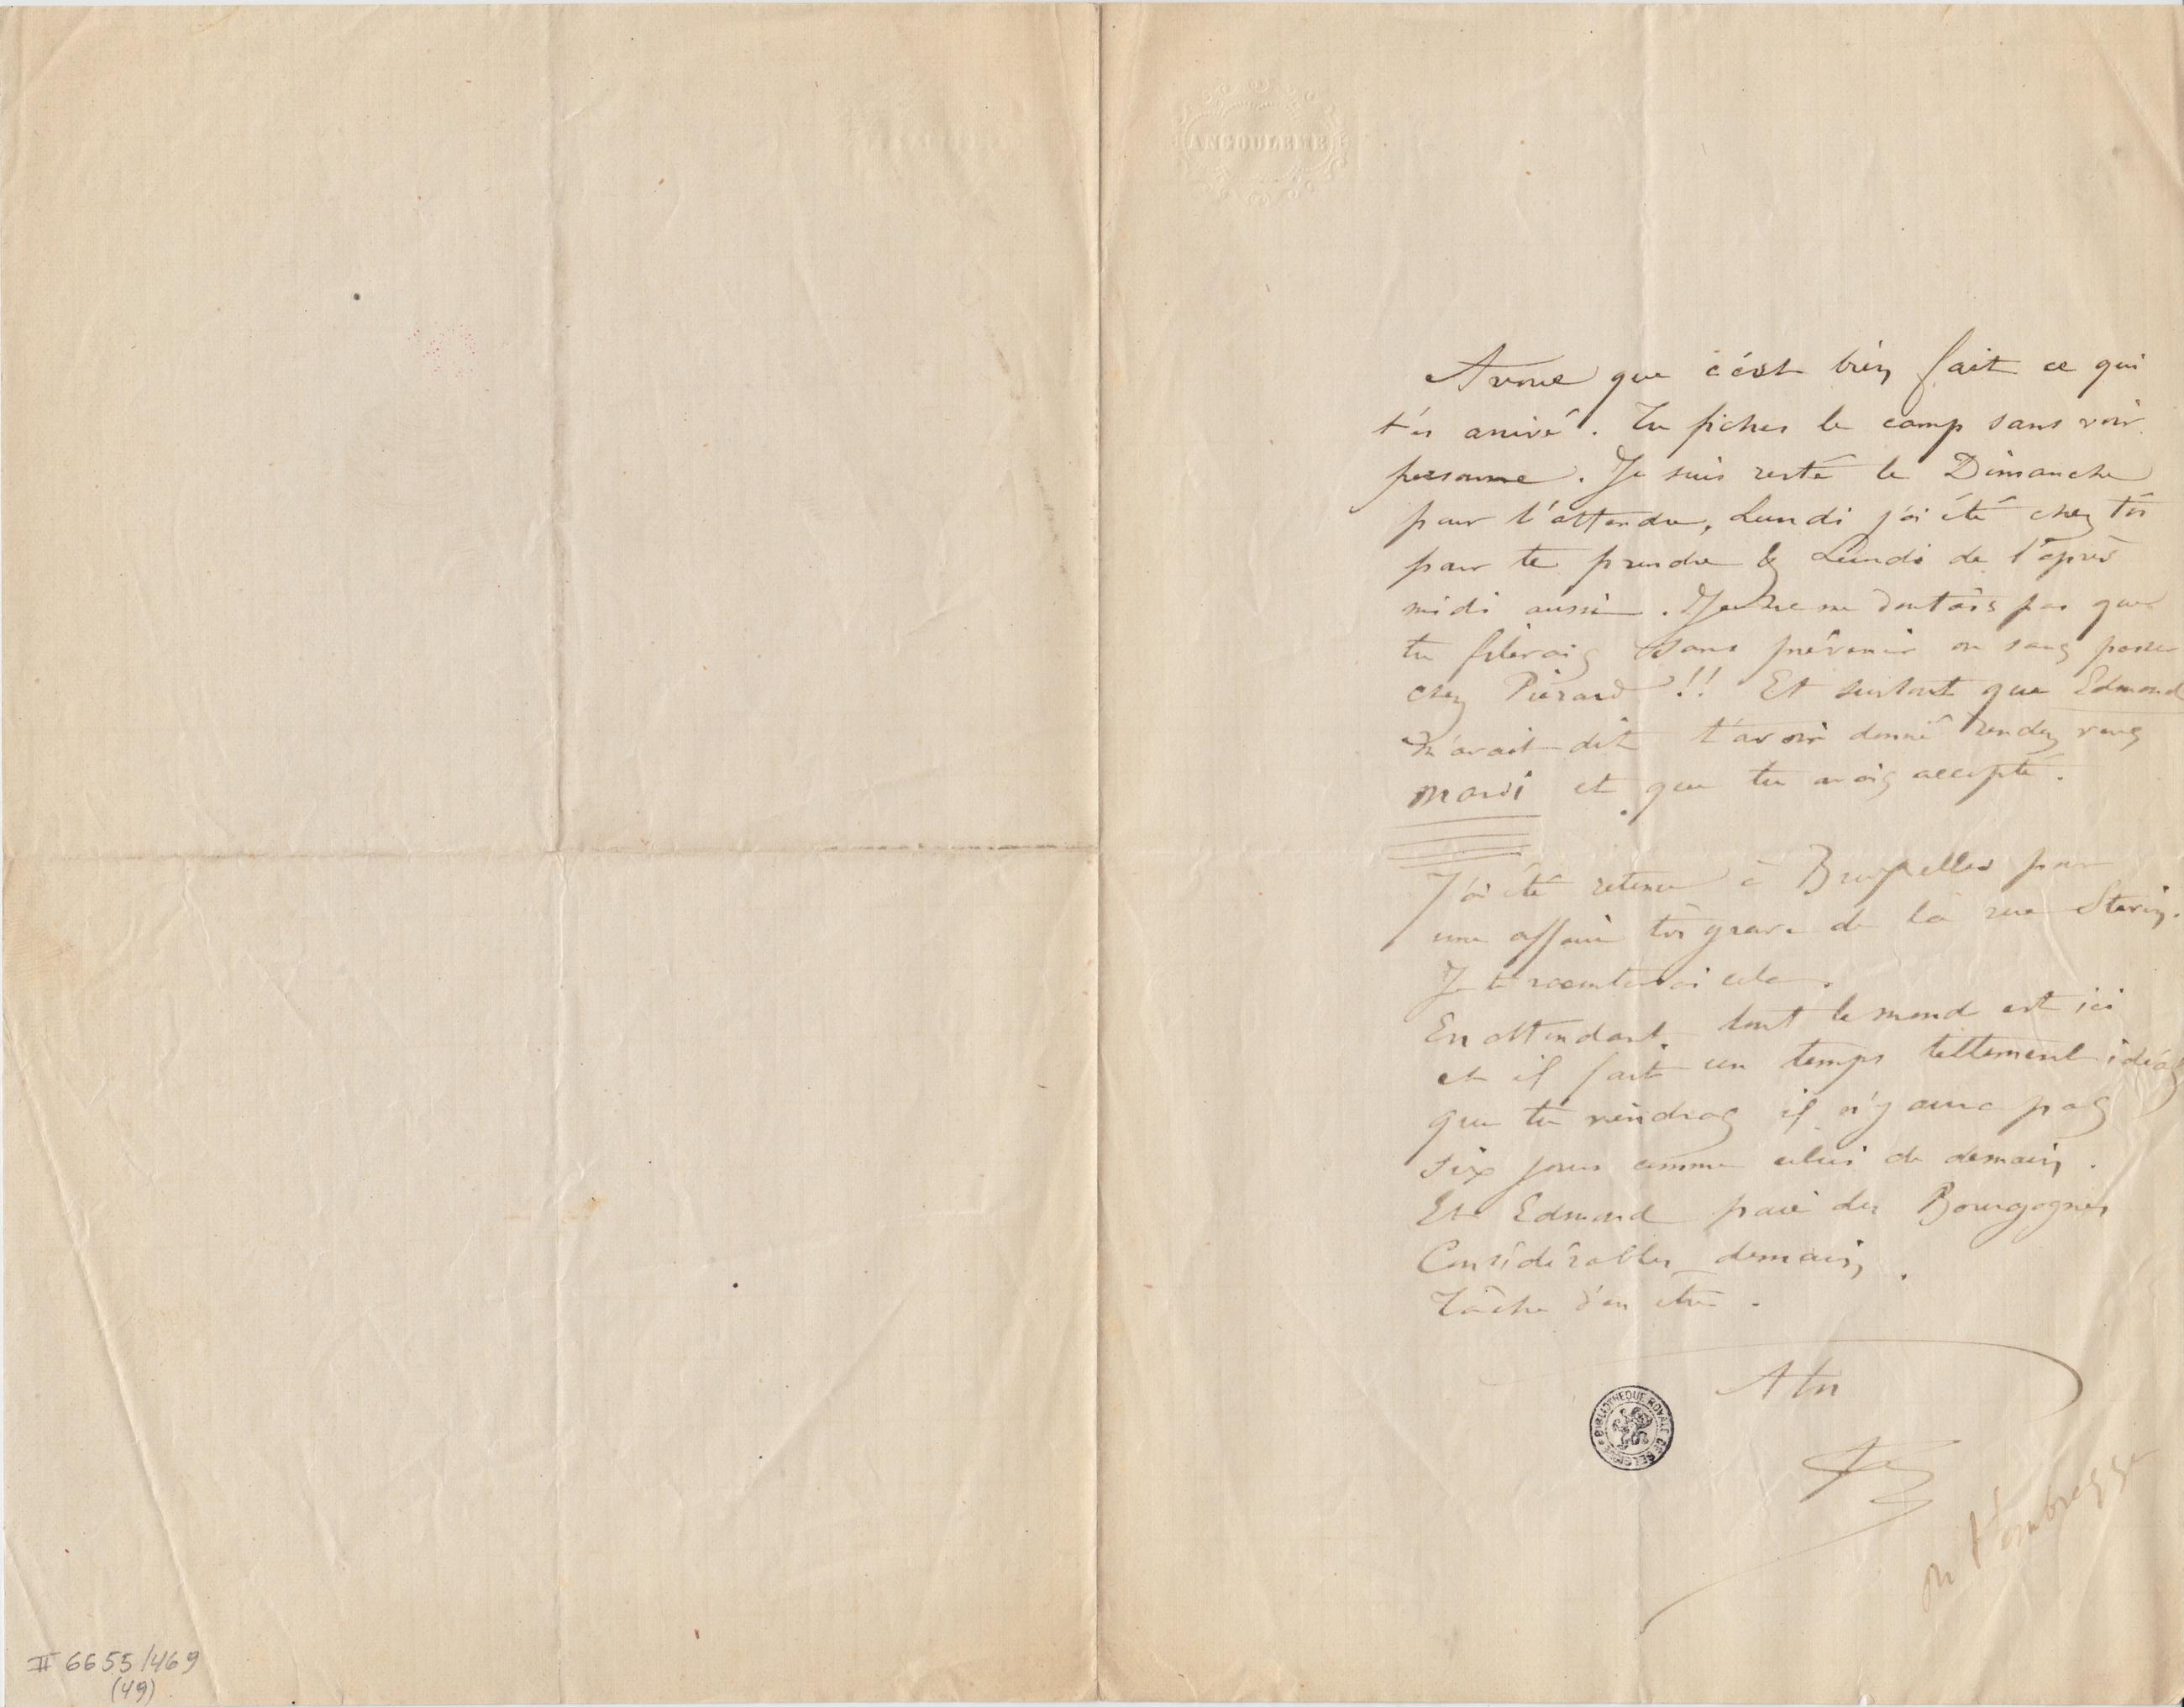 ANGOULEME
Avoue que c'est bien fait ce qui
t'es arrivé. Tu fiches le camp sans voir
personne. Je suis resté le Dimanche
pour t'attendre, Lundi j'ai été chez toi
pour te prendre & Lundi de l'après
midi aussi. Je ne me doutais pas que
tu filerais sans prévenir ou sans passer
chez Piérard!! Et surtout que Edmond
m'avait dit t'avoir donné rendez vous
mardi et que tu avais accepté.
J'ai été retenu à Bruxelles par
une affaire très grave de la rue
Je te raconterai cela.
En attendant tout le monde est ici
et il fait un temps tellement idéal
que tu viendras il n'y aura pas
six jours comme celui de demain.
Et Edmond paie des Bourgognes
Considérables demain.
Tâche d'en être.
A toi
BIBLIOTHEQUE ROYALE DE BELGIQUE
II 6655/469
(49)